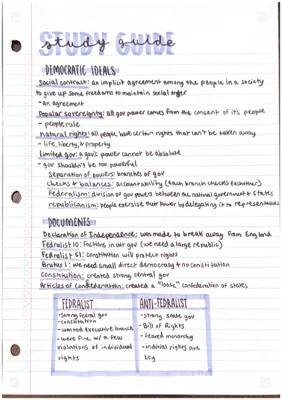 STUDY GUIDE
study guide
DEMOCRATIC IDEALS
Social contract: an implicit agreement among the people in a society
to give up some freedoms to maintain social order
- an agreement
Popular sovereignty: all gov power comes from the consent of its people
- people rule
Natural rights: all people have certain rights that can't be taken away
- life, liberty, & property
Limited gov: a gov's power cannot be absolute
- gov shouldn't be too powerful
Separation of powers: branches of gov
checks & balances: accountability (each branch checks executive)
Federalism: division of gov powers between the national government & states
republicanism: people exercise their power by delegating it to representatives
DOCUMENTS
Declaration of Independence: was made to break away from England
Federalist 10: factions in our gov (we need a large republic)
Federalist 51: constitution will protect rights
Brutus 1: we need small direct democracy & no constitution
Constitution: created strong central gov
Articles of Confederation: created a "loose" confederation of states
FEDERALIST
- strong federal gov
- constitution
- limited executive branch
- were fine w/ a few
violations of individual
rights
ANTI-FEDERALIST
- strong state gov
- Bill of Rights
- feared monarchy
- rights are
key